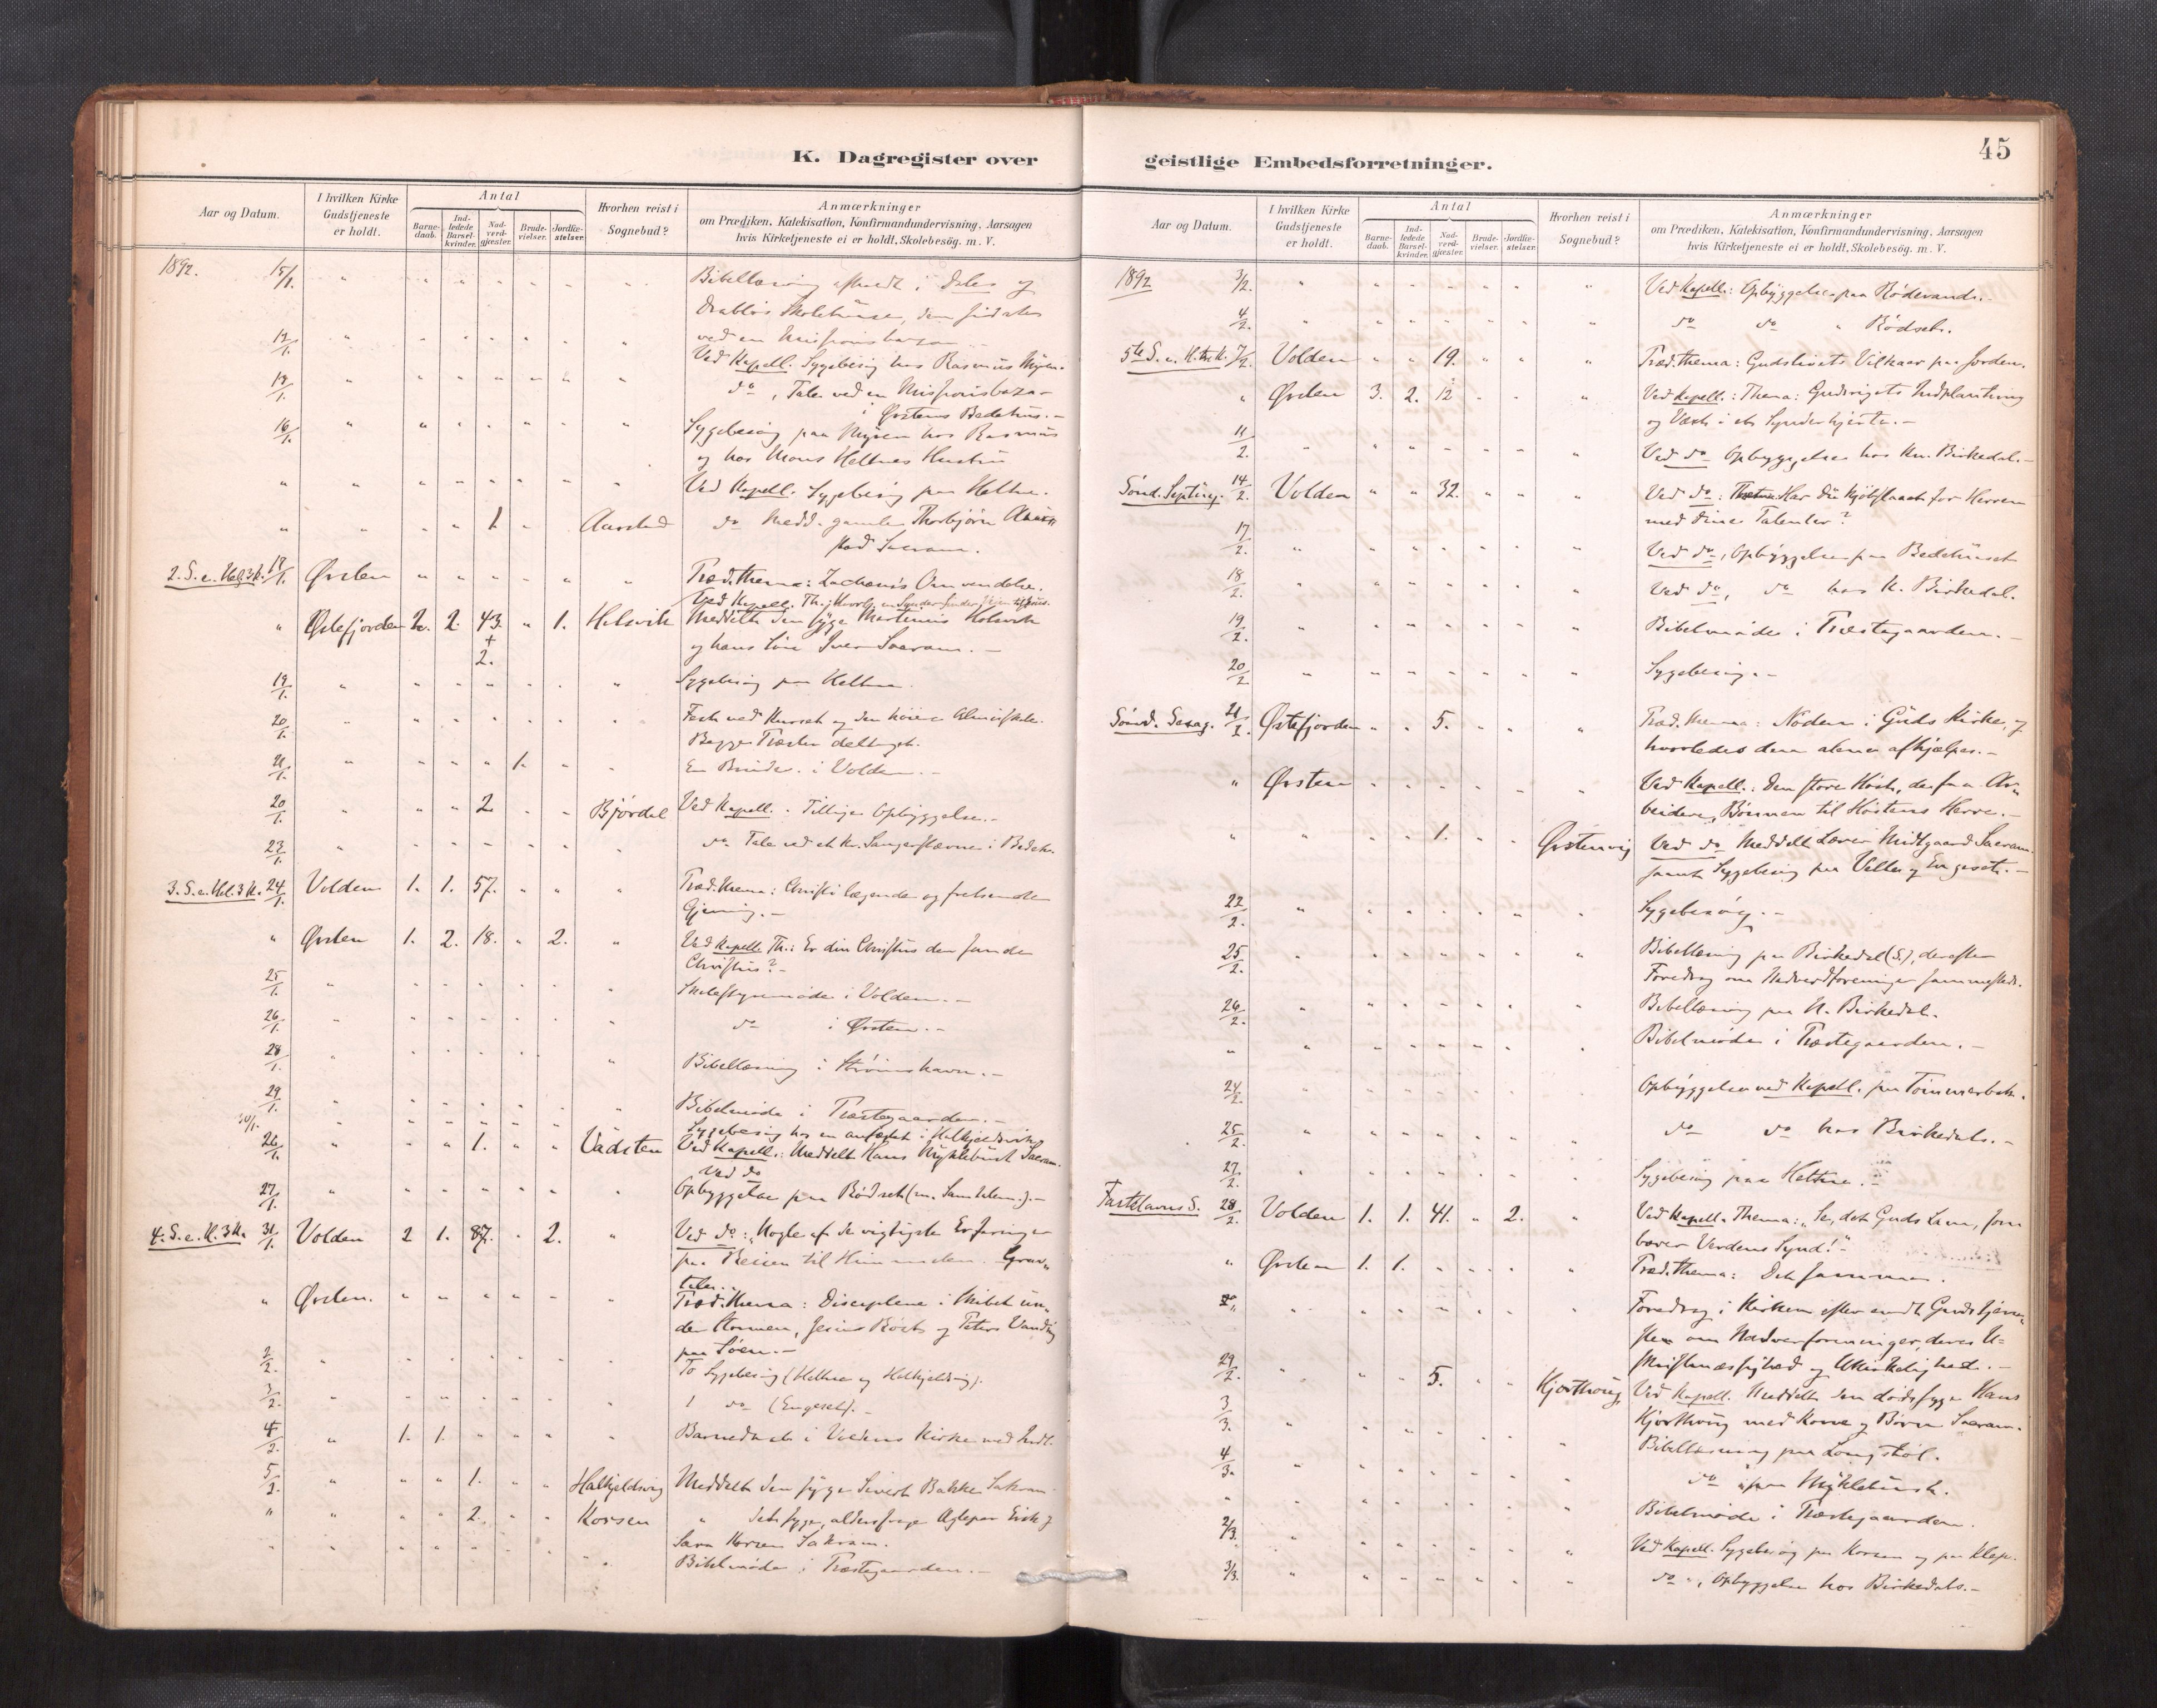 K. Dagregister over
Aar og Datum.
I hvilken Kirke Gudstjeneste er holdt.
Antal
Barne-daab.
Ind-ledede Barsel-kvinder.
Nad-verd-gjæster.
Brude-vielser.
Jordfæ-stelser.
Hvorhen reist i Sognebud?
Anmærkninger
om Prædiken, Katekisation, Konfirmandundervisning, Aarsagen
hvis Kirketjeneste ei er holdt, Skolebesög. m. V.
1892. 15/1. " " " " " " " Bibellæsning afholdt i Dales og
Skolehuse, den sidste
ved en Missionsbazar
12/1. " " " " " " " Ved Kapell. Sygebesøg hos Rasmus Myren.
14/1. " " " " " " " do, Tale ved en Missionsbazar
i Ørstens Bedehus.-
16/1. " " " " " " " Sygebesøg paa Myren hos Rasmus
og hos Mons Heltnes Hustru
" " " " " " " " Ved Kapell. Sygebesøg paa Heltne.
" " " " 1. " Aarstad do Medd. gamle Thorbjørn Aarstad
Sacram.
2. S. e. Hel. 3 K. 17/1. Ørsten " " " " " " Præd. thema: Zachæus's Omvendelse.
Ved Kapell. Th.: Hvorl. en Synder finder frem til Jesus.
" Østefjorden 2. 2. 43. " 1. Helsvik Meddelt den syge Martinus Helsvik
+ 2. og hans Søn Iver Sacram.-
19/1. " " " " " " " Sygebesøg paa Heltne.
20/1. " " " " " " " Fest ved Kurset og den høiere Almueskole.
Begge Præster deltaget.
21/1. " " " " 1. " " En Brudev. i Volden.-
20/1. " " " 2 " " Bjørdal Ved Kapell. Tillige Opbyggelse.-
23/1. " " " " " " " do Tale ved et Kr. Sangerstævne i Bedeh.
3. S. e. Hel. 3 K. 24/1. Volden 1. 1. 57. " " " Præd. thema: Christi lægende og frelsende
Gjerning.-
" Ørsten 1. 2. 18. " 2. " Ved Kapell. Th.: Er din Christus den sande
Christus?-
25/1. " " " " " " " Skolestyremøde i Volden.-
26/1. " " " " " " " do i Ørsten.-
28/1. " " " " " " " Bibellæsning i Strømshavn.-
29/1. " " " " " " " Bibelmøde i Præstegaarden.-
30/1. " " " " " " " Sygebesøg hos en anfægtet i Halkjeldsvig
26/1. " " " 1. " " Vadsten Ved Kapell.: Meddelt Hans Myklebust Sacram.
Ved do
27/1. " " " " " " " Opbyggelse paa Rødset
4. S. e. H. 3 K. 31/1. Volden 2 1. 87. " 2. " Ved do: "Nogle af de vigtigste Erfaringer
paa Reisen til Himmelen. Grav-
tale.
" Ørsten. " " " " " " Præd. thema: Disciplene i Skibet un-
der Stormen, Jesus's Røst og Peters Vandring
paa Søen.-
2/2. " " " " " " " To Sygebesøg (Heltne og Halkjeldsvig).
3/2. " " " " " " " 1 do (Engeset).-
4/2. " 1. 1. " " " " Barnedaab i Voldens Kirke med Indl.
5/2. " " " 1. " " Halkjeldsvig Meddelt den syge Sivert Bakke Sakram.
" " " " 2. " " Korsen " det syge, alderssvage Ægtepar Erik og
Sara Korsen Sakram.
" " " " " " " " Bibelmøde i Præstegaarden.-
geistlige Embedsforretninger.
45
Aar og Datum.
I hvilken Kirke Gudstjeneste er holdt.
Antal
Barne-daab.
Ind-ledede Barsel-kvinder.
Nad-verd-gjæster.
Brude-vielser.
Jordfæ-stelser.
Hvorhen reist i Sognebud?
Anmærkninger
om Prædiken, Katekisation, Konfirmandundervisning, Aarsagen
hvis Kirketjeneste ei er holdt, Skolebesög. m. V.
1892 3/2. " " " " " " " Ved Kapell.: Opbyggelse paa Rödevands.-
4/2. " " " " " " " do do " Rødset.
5te S. e. H. tre K. 7/2. Volden " " 19. " " " Præd. thema: Gudslivets Vilkaar paa Jorden.
" Ørsten 3. 2. 12 " " " Ved Kapell.: Thema: Gudsrigets Indplantning
og Væxt i et Synderhjerte.-
11/2. " " " " " " " Ved do Opbyggelse hos Kn. Birkedal.-
Sønd. Septuag. 14/2. Volden " " 32. " " " Ved do: Har du Kjøbslaaet for Herren
med dine Talenter?
17/2. " " " " " " " Ved do, Opbyggelse paa Bedehuset
18/2. " " " " " " " Ved do, do hos K. Birkedal.
19/2. " " " " " " " Bibelmøde i Præstegaarden.-
20/2 " " " " " " " Sygebesøg.-
Sønd. Sexag. 21/2. Østefjorden " " 5. " " " Præd. thema: Nøden i Guds Kirke, og
hvorledes den alene afhjælpes.-
" Ørsten " " " " " " Ved Kapell.: Den store Høst, de faa Ar-
beidere, Bønnen til Høstens Herre.-
" " " " 1. " " Ørstenvig Ved do Meddelt Lærer Midtgaard Sacram.
samt Sygebesøg paa Velle og Engeset.-
22/2. " " " " " " " Sygebesøg.-
25/2. " " " " " " " Bibellæsning paa Birkedal (S.), derefter
Foredrag om Nadverdforeninger sammesteds.
26/2. " " " " " " " Bibellæsning paa N. Birkedal.
" " " " " " " " Bibelmøde i Præstegaarden.-
24/2. " " " " " " " Opbyggelse ved Kapell. paa Tømmerbak.
25/2. " " " " " " " do do hos Birkedals.-
27/2. " " " " " " " Sygebesøg paa Heltne.-
Fastelavns S. 28/2. Volden 1. 1. 41. " 2. " Ved Kapell. Thema: "Se, det Guds Lam, som
bærer Verdens Synd!"-
" Ørsten 1. 1. " " " " Præd. thema: Det samme.
" " " " " " " Foredrag i Kirken efter endt Gudstjene-
ste om Nadverforeninger, deres U-
skriftmæssighed og Ukirkelighed.-
29/2. " " " 5. " " Kjørthoug Ved Kapell. Meddelt den dødssyge Hans
Kjørthoug med Kone og Børn Sacram.
3/3. " " " " " " " Bibellæsning paa
4/3. " " " " " " " do paa Myklebust.
" " " " " " " " Bibelmøde i Præstegaarden.
2/3. " " " " " " " Ved Kapell. Sygebesøg paa Korsen og paa Klep.
3/3. " " " " " " " do ", Opbyggelse hos Birkedals.-